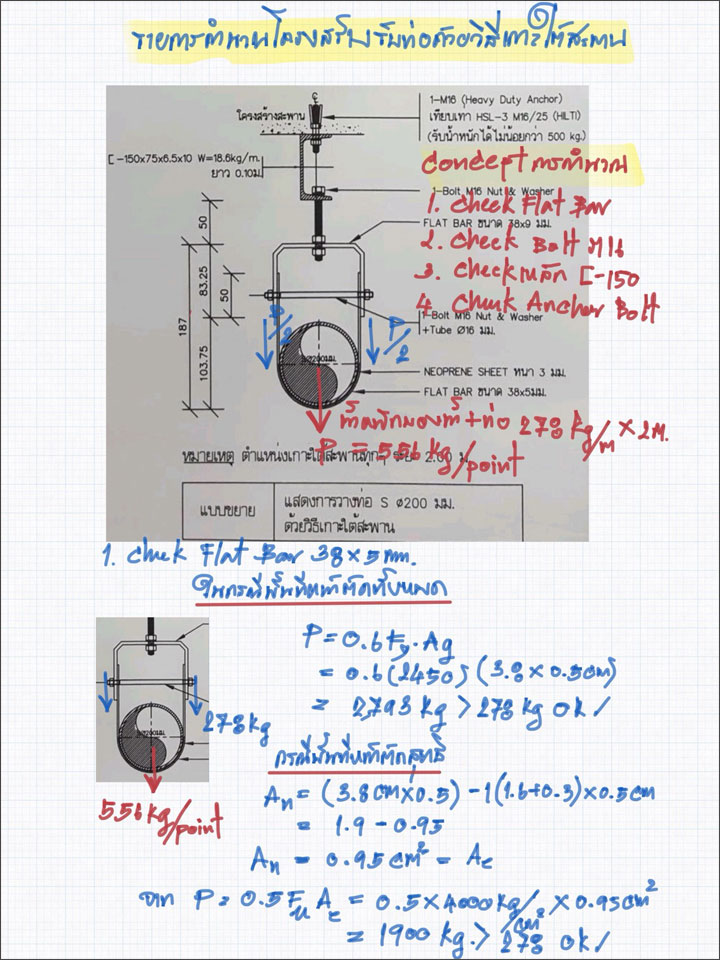 รายการคำนวณโครงสร้างรับท่อด้วยวิธีเกาะใต้สะพาน
โครงสร้างสะพาน
1-M16 (Heavy Duty Anchor)
เทียบเท่า HSL-3 M16/25 (HILTI)
(รับน้ำหนักได้ไม่น้อยกว่า 500 kg.)
[-150x75x6.5x10 W=18.6kg/m.
ยาว 0.10ม.
Concept การคำนวณ
1-Bolt M16 Nut & Washer
1. Check Flat Bar
FLAT BAR ขนาด 38x9 มม.
2. Check Bolt M16
3. Check เหล็ก [-150
4. Chenk Anchor Bolt
1-Bolt M16 Nut & Washer
+Tube Ø16 มม.
50
83.25
50
187
103.75
P/2
P/2
Ø200มม.
NEOPRENE SHEET หนา 3 มม.
FLAT BAR ขนาด 38x5มม.
น้ำหนักของน้ำ+ท่อ 278 kg/m × 2M.
P = 556 kg/point
หมายเหตุ ตำแหน่งเกาะใต้สะพานทุกๆ ระยะ 2.00 ม.
แบบขยาย
แสดงการวางท่อ S Ø200 มม.
ด้วยวิธีเกาะใต้สะพาน
1. Chenk Flat Bar 38×5 mm.
ในกรณีพื้นที่หน้าตัดทั้งหมด
P = 0.6Fy.Ag
= 0.6(2450)(3.8×0.5cm)
= 2,793 kg > 278 kg ok/
278kg
Ø200มม.
556kg/point
กรณีพื้นที่หน้าตัดสุทธิ
An = (3.8cm×0.5) - 1(1.6+0.3)×0.5cm
= 1.9 - 0.95
An = 0.95cm² = Ae
จาก P = 0.5 Fu Ae = 0.5×4000kg/cm² × 0.95cm²
= 1900 kg. > 278 ok/